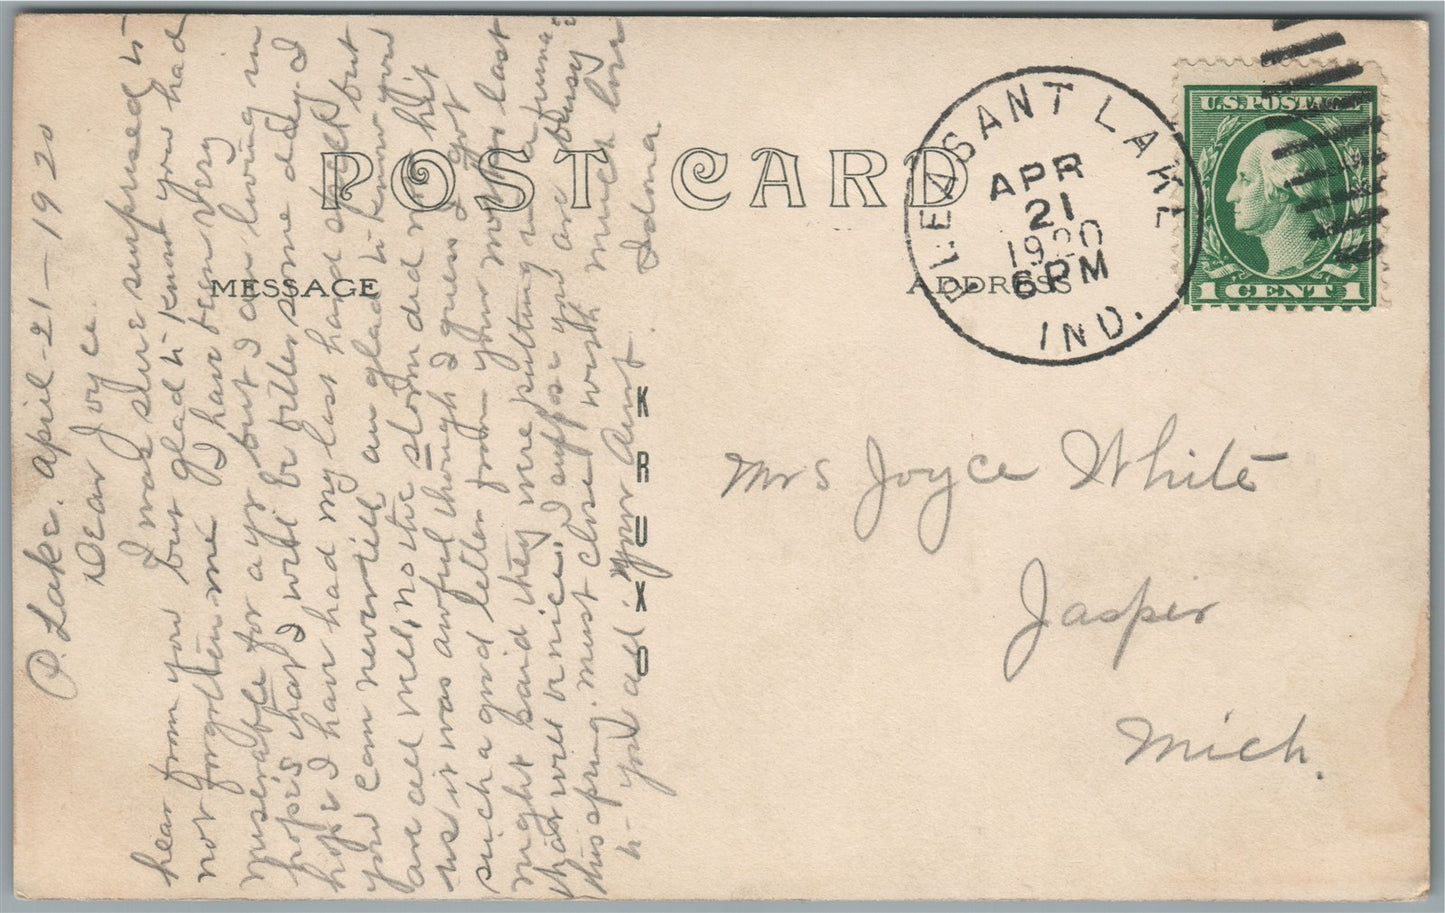 POST CARD
MESSAGE
ADDRESS
KRUXO
PLEASANT LAKE
APR
21
1920
6 PM
IND.
U.S. POSTAGE
1 CENT 1
Mrs Joyce White
Jasper
Mich.
P. Lake. April-21-1920
Dear Joyce.
I was sure surprised to
hear from you but glad to know you had
not forgotten me I have been very
miserable for a yr but I am living in
hopes that I will be better some day. I
hope I have had my last hard spell but
you can never tell am glad to know you
are all well, no the storm did not hit
us it was awful though I guess I got
such a good letter from your mother last
night said they were putting in a furnace
that will be nice, I suppose you are busy
this spring. must close with much love
to you all. Your Aunt.
Idona